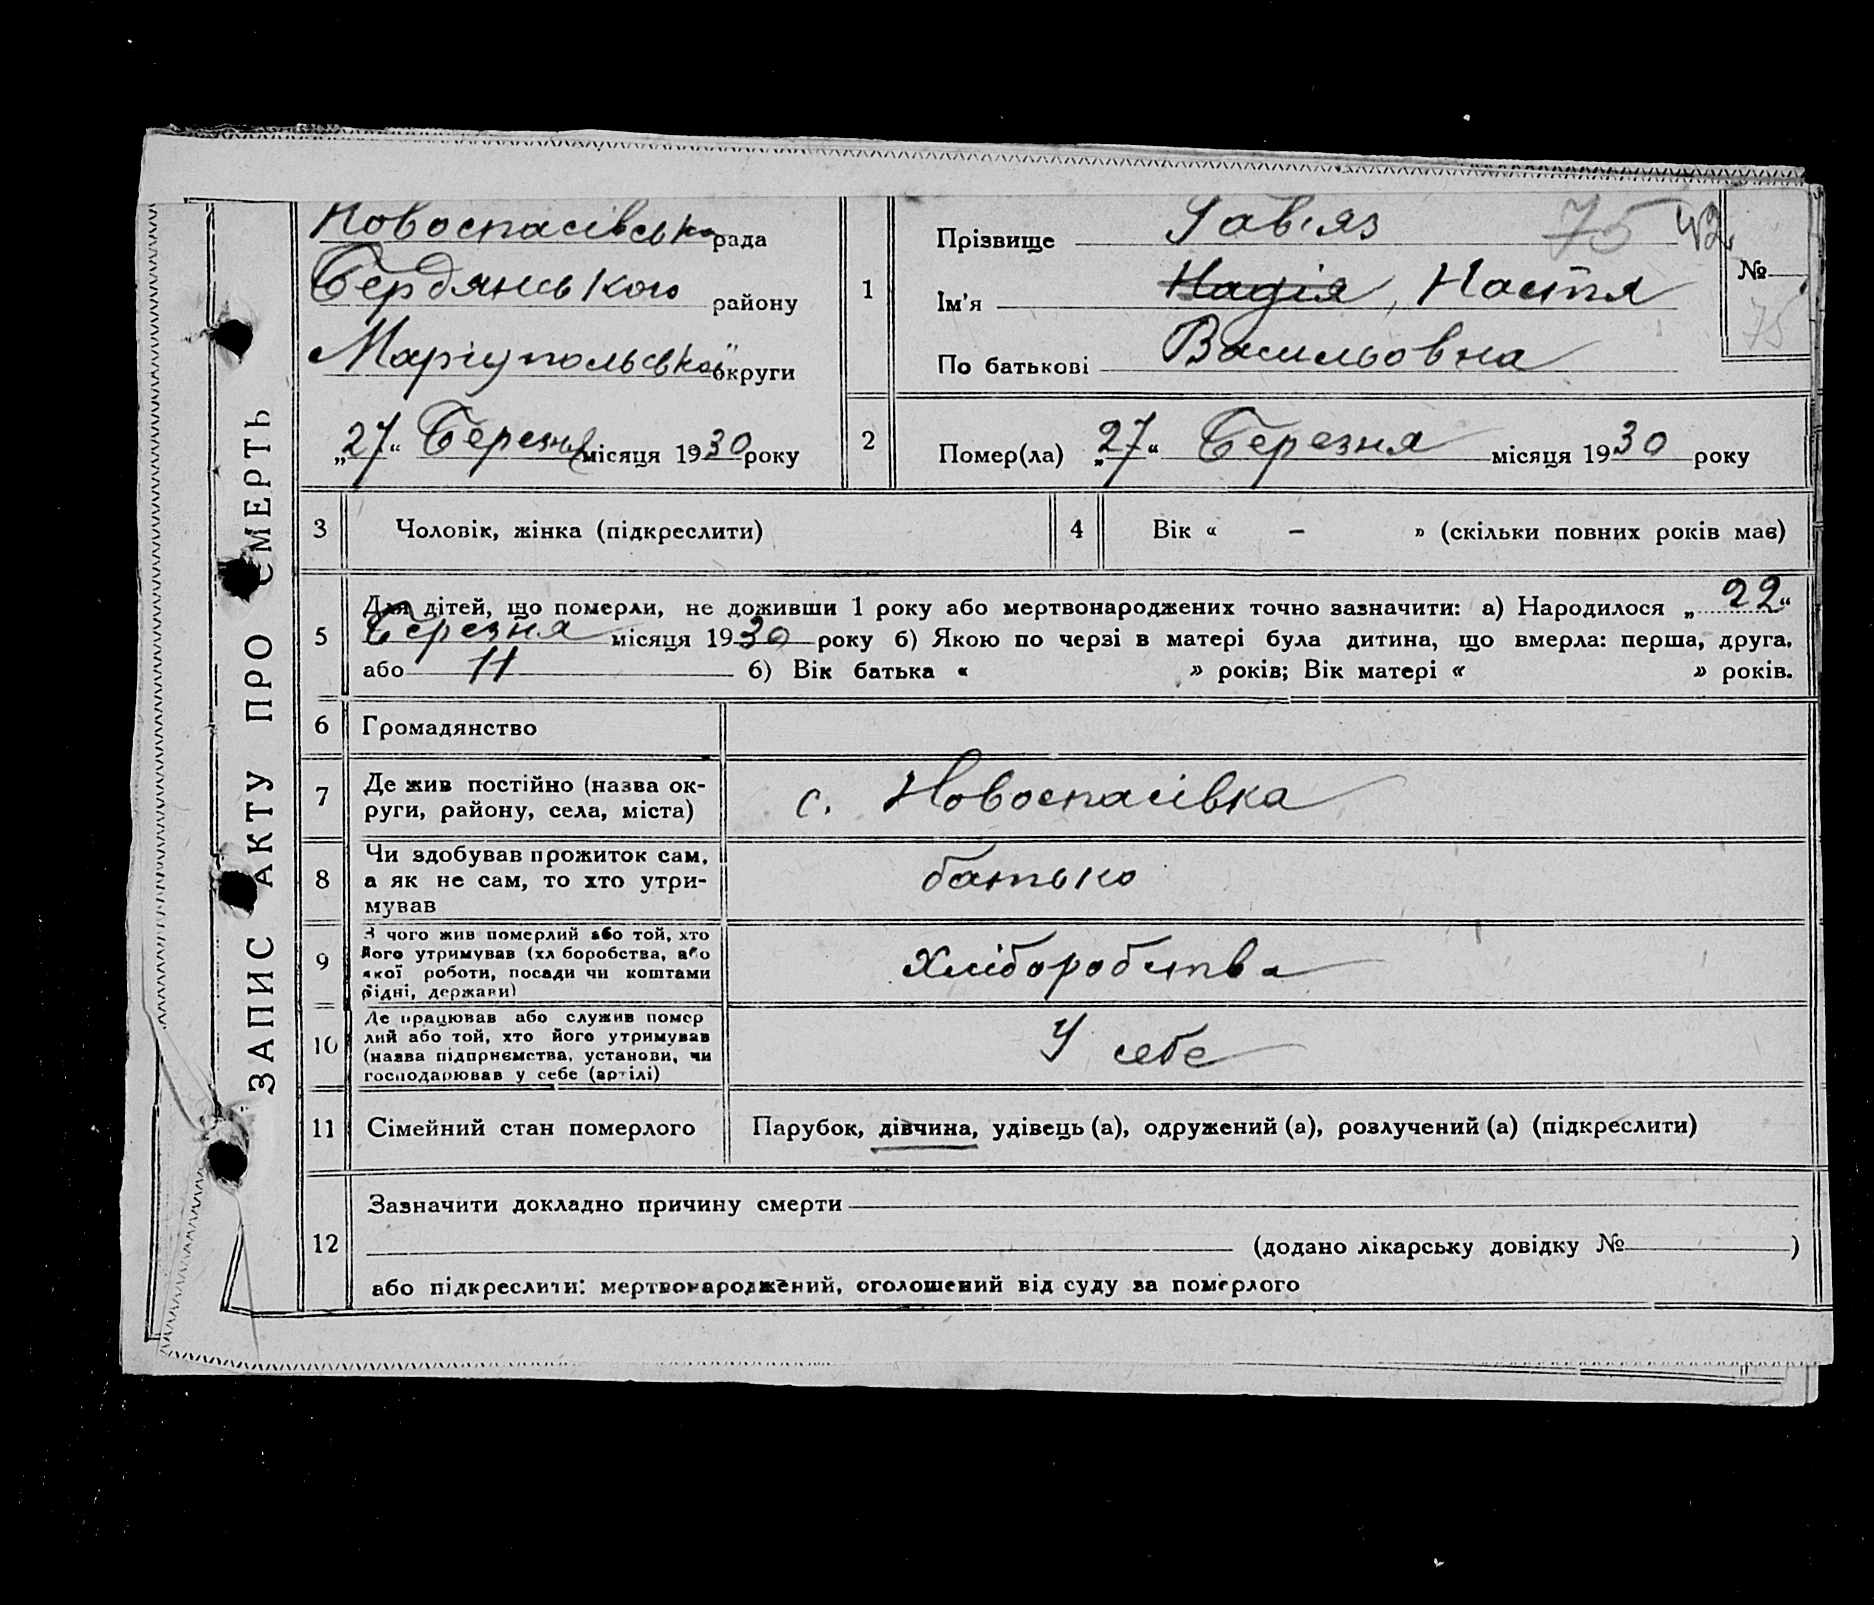 ЗАПИС АКТУ ПРО СМЕРТЬ
Новоспасівська рада
Бердянського району
Маріупольської округи
„27“ Березня місяця 1930 року
1
Прізвище Гав'яз 75 42
Ім'я Надія, Настя
По батькові Васильовна
№
75
2
Помер(ла) „27“ Березня місяця 1930 року
3 Чоловік, жінка (підкреслити)
4 Вік « – » (скільки повних років має)
5
Для дітей, що померли, не доживши 1 року або мертвонароджених точно зазначити: а) Народилося „22“
Березня місяця 1930 року б) Якою по черзі в матері була дитина, що вмерла: перша, друга,
або 11 б) Вік батька « » років; Вік матері « » років.
6 Громадянство
7 Де жив постійно (назва ок-
руги, району, села, міста)
с. Новоспасівка
8 Чи здобував прожиток сам,
а як не сам, то хто утри-
мував
батько
9 З чого жив померлий або той, хто
його утримував (хл боробства, або
якої роботи, посади чи коштами
рідні, держави)
Хліборобства
10 Де працював або служив помер
лий або той, хто його утримував
(назва підприємства, установи, чи
господарював у себе (артілі)
У себе
11 Сімейний стан померлого
Парубок, дівчина, удівець (а), одружений (а), розлучений (а) (підкреслити)
12
Зазначити докладно причину смерти
(додано лікарську довідку № )
або підкреслити: мертвонароджений, оголошений від суду за померлого